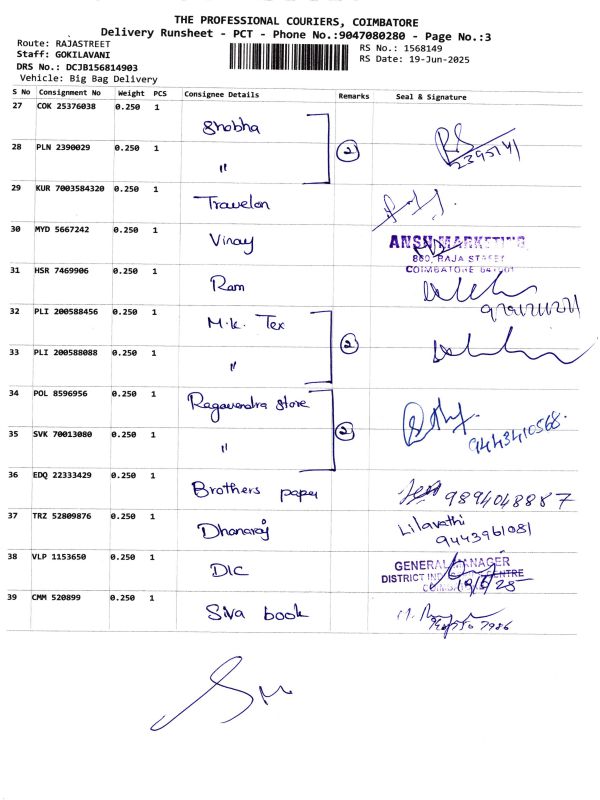 THE PROFESSIONAL COURIERS, COIMBATORE
Delivery Runsheet - PCT - Phone No.:9047080280 - Page No.:3
Route: RAJASTREET
Staff: GOKILAVANI
DRS No.: DCJB156814903
Vehicle: Big Bag Delivery
RS No.: 1568149
RS Date: 19-Jun-2025
S No Consignment No Weight PCS Consignee Details Remarks Seal & Signature
27 COK 25376038 0.250 1 Shobha
28 PLN 2390029 0.250 1 " 2
29 KUR 7003584320 0.250 1 Travelon
30 MYD 5667242 0.250 1 Vinay ANSN MARKETING
860, RAJA STREET
COIMBATORE 641001
31 HSR 7469906 0.250 1 Ram
32 PLI 200588456 0.250 1 M.K. Tex 2
33 PLI 200588088 0.250 1 "
34 POL 8596956 0.250 1 Ragavendra store
35 SVK 70013080 0.250 1 " 2 9443410568.
36 EDQ 22333429 0.250 1 Brothers paper 9894048887
37 TRZ 52809876 0.250 1 Dhanaraj Lilavathi
9443961081
38 VLP 1153650 0.250 1 DIC GENERAL MANAGER
DISTRICT CENTRE
19/6/25
39 CMM 520899 0.250 1 Siva book